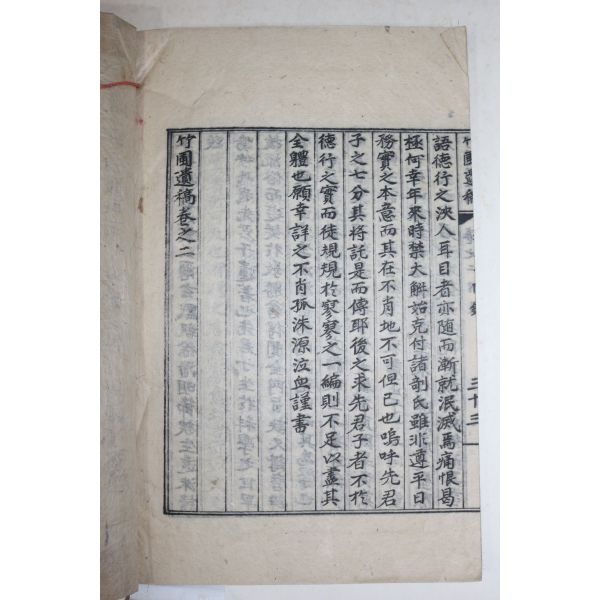 竹圃遺稿
三十三
語德行之浹人耳目者亦随而漸就泯滅焉痛恨曷
極何幸年來時禁大觧始克付諸剞氏雖非遵平日
務實之本意而其在不肖地不可但已也嗚呼先君
子之七分其將託是而傳耶後之求先君子者不於
德行之實而徒規規於寥寥之一編則不足以盡其
全體也願幸詳之不肖孤洙源泣血謹書
竹圃遺稿卷之二